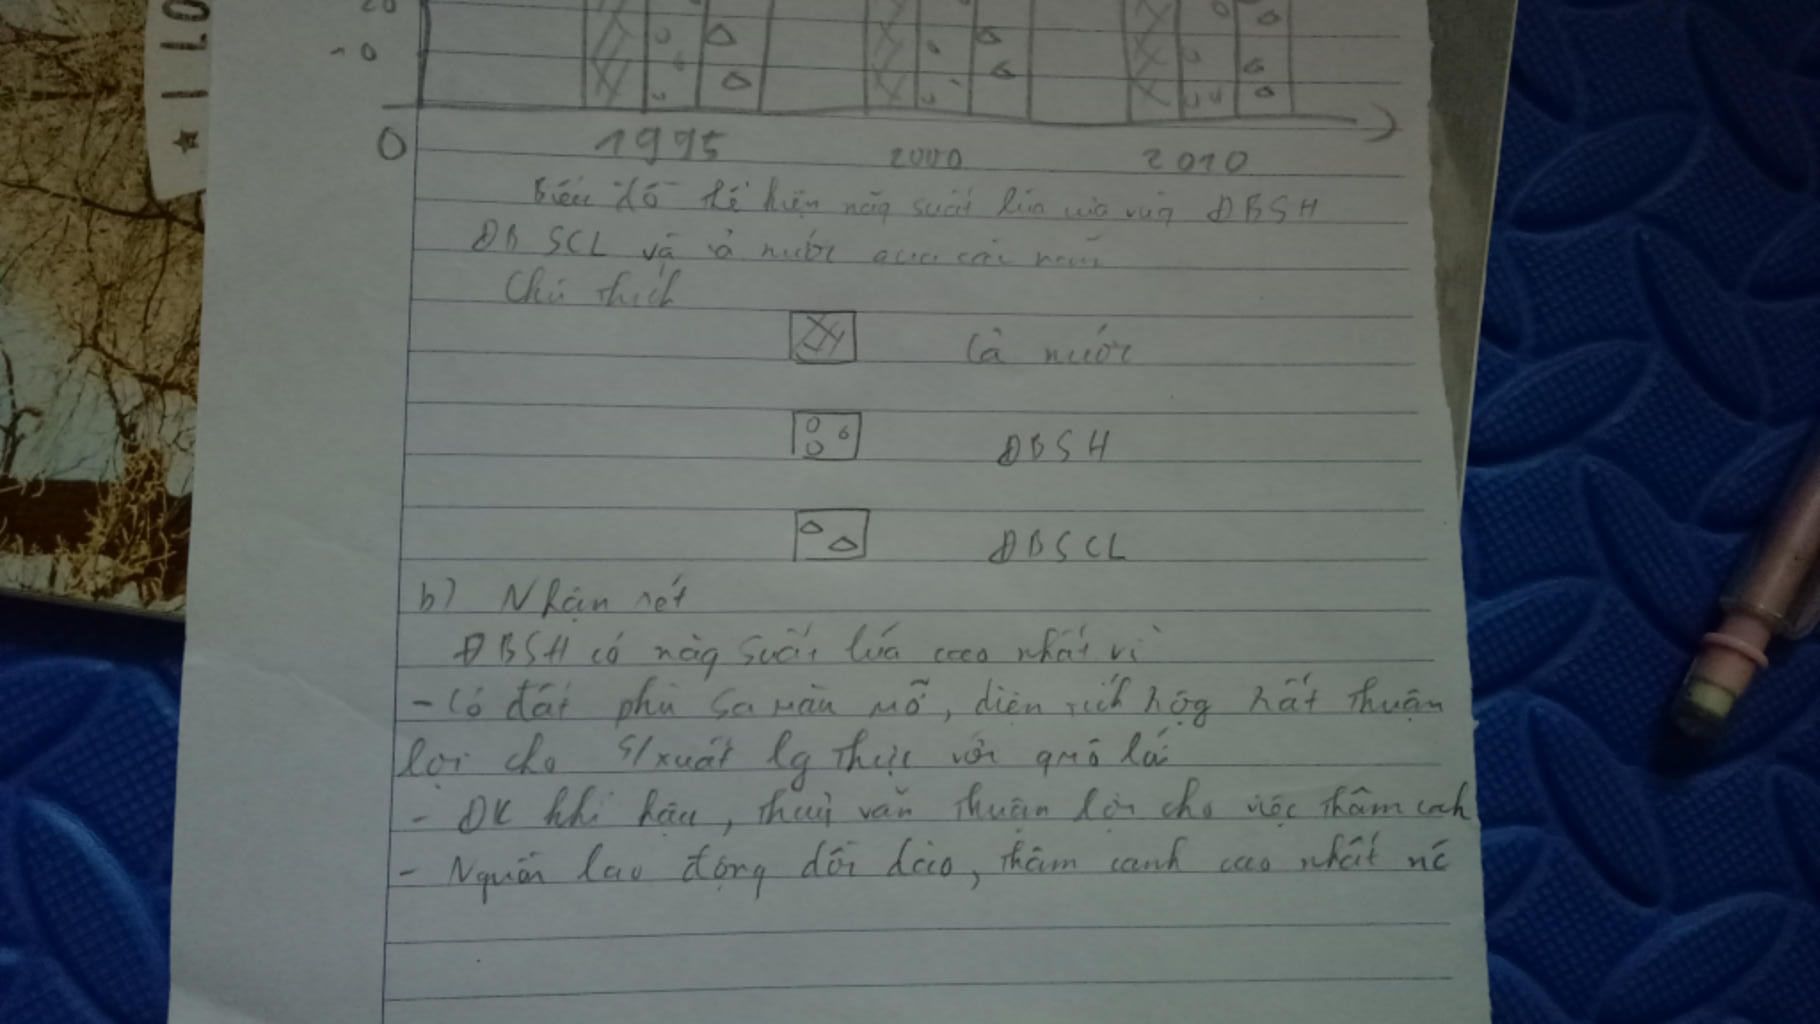 20
10
★ I LO
0 1995 2000 2010
Biểu đồ thể hiện năg suất lúa của vùg ĐBSH
ĐBSCL và cả nước qua các năm
Chú thích
Cả nước
ĐBSH
ĐBSCL
b) Nhận xét
ĐBSH có năg suất lúa cao nhất vì
- Có đất phù sa màu mỡ, diện tích rộg rất thuận
lợi cho s/xuất lg thực với qmô lớ
- ĐK khí hậu, thuỷ văn thuận lợi cho việc thâm cah
- Nguồn lao động dồi dào, thâm canh cao nhất nc